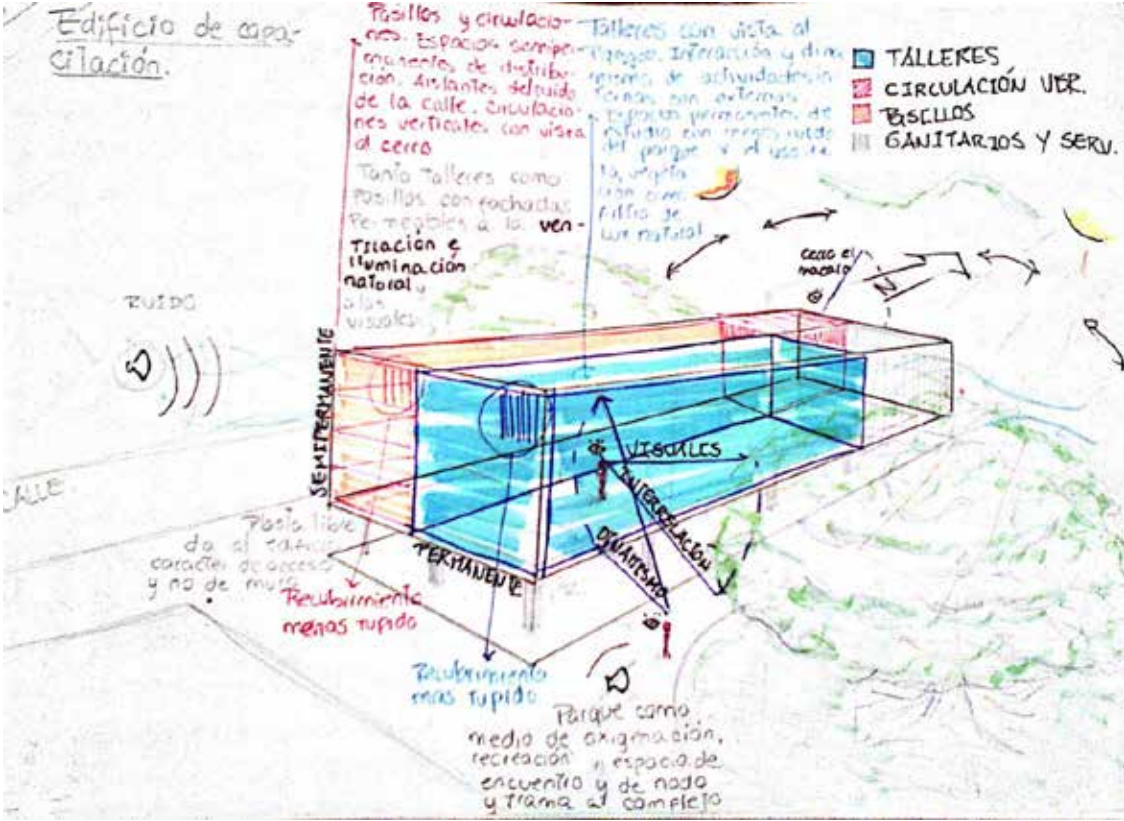 Edificio de capa-
cilación.
Pasillos y circulacio-
nes. Espacios semiper-
manentes de distribu-
ción. Aislantes del ruido
de la calle. Circulacio-
nes verticales con vista
al cerro
Tanto Talleres como
Pasillos con fachadas
Permeables a la ven-
Tilación e
iluminación
natural y
a las
visuales
Talleres con vista al
Parque. Interacción y dina
mismo de actividades in
ternas con externas
Espacios permanentes de
estudio con menos ruido
del parque y el
filtro de
luz natural
TALLERES
CIRCULACIÓN VER.
PASILLOS
SANITARIOS Y SERV.
RUIDO
cerro el
N
SEMIPERMANENTE
PERMANENTE
VISUALES
INTERRELACIÓN
DINAMISMO
CALLE
Planta libre
da al edificio
caracter de acceso
y no de muro
Recubrimiento
menos tupido
Recubrimiento
mas tupido
Parque como
medio de oxigenación,
recreación, espacio de
encuentro y de nodo
y trama al complejo